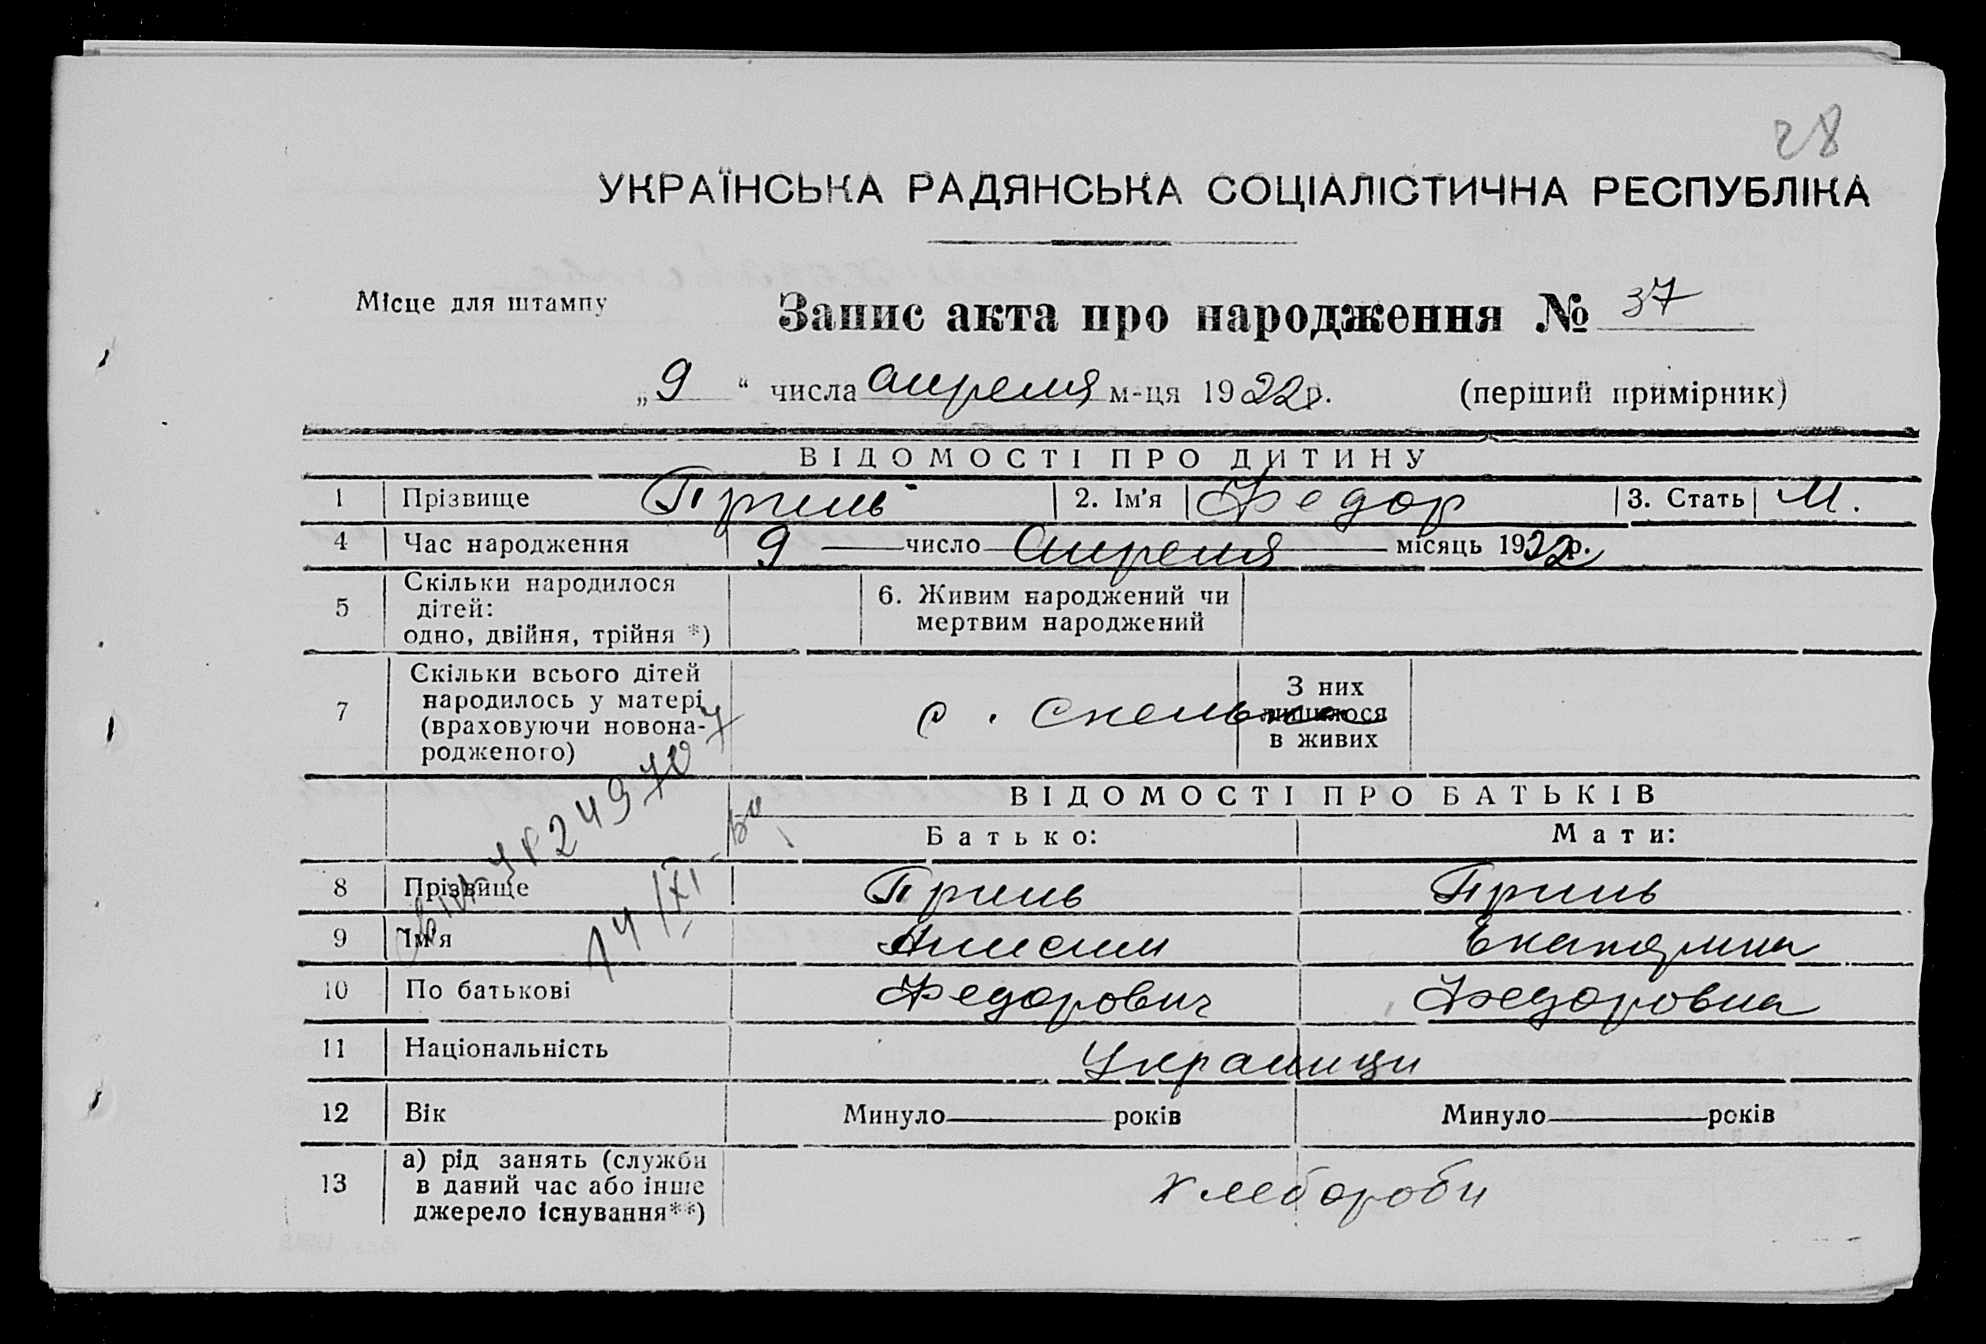 28
УКРАЇНСЬКА РАДЯНСЬКА СОЦІАЛІСТИЧНА РЕСПУБЛІКА
Місце для штампу
Запис акта про народження № 37
„9“ числа апреля м-ця 1922р. (перший примірник)
ВІДОМОСТІ ПРО ДИТИНУ
1 Прізвище Приль 2. Ім'я Федор 3. Стать М.
4 Час народження 9 число Апреля місяць 1922р.
5 Скільки народилося дітей: одно, двійня, трійня *) 6. Живим народжений чи мертвим народжений
7 Скільки всього дітей народилось у матері (враховуючи новонародженого) с. Скелька З них лишилося в живих
ВІДОМОСТІ ПРО БАТЬКІВ
Батько: Мати:
8 Прізвище Приль Приль
9 Ім'я Анисим Екатерина
10 По батькові Федорович Федоровна
11 Національність Украинци
12 Вік Минуло років Минуло років
13 а) рід занять (служби в даний час або інше джерело існування**) хлебороби
14/XI